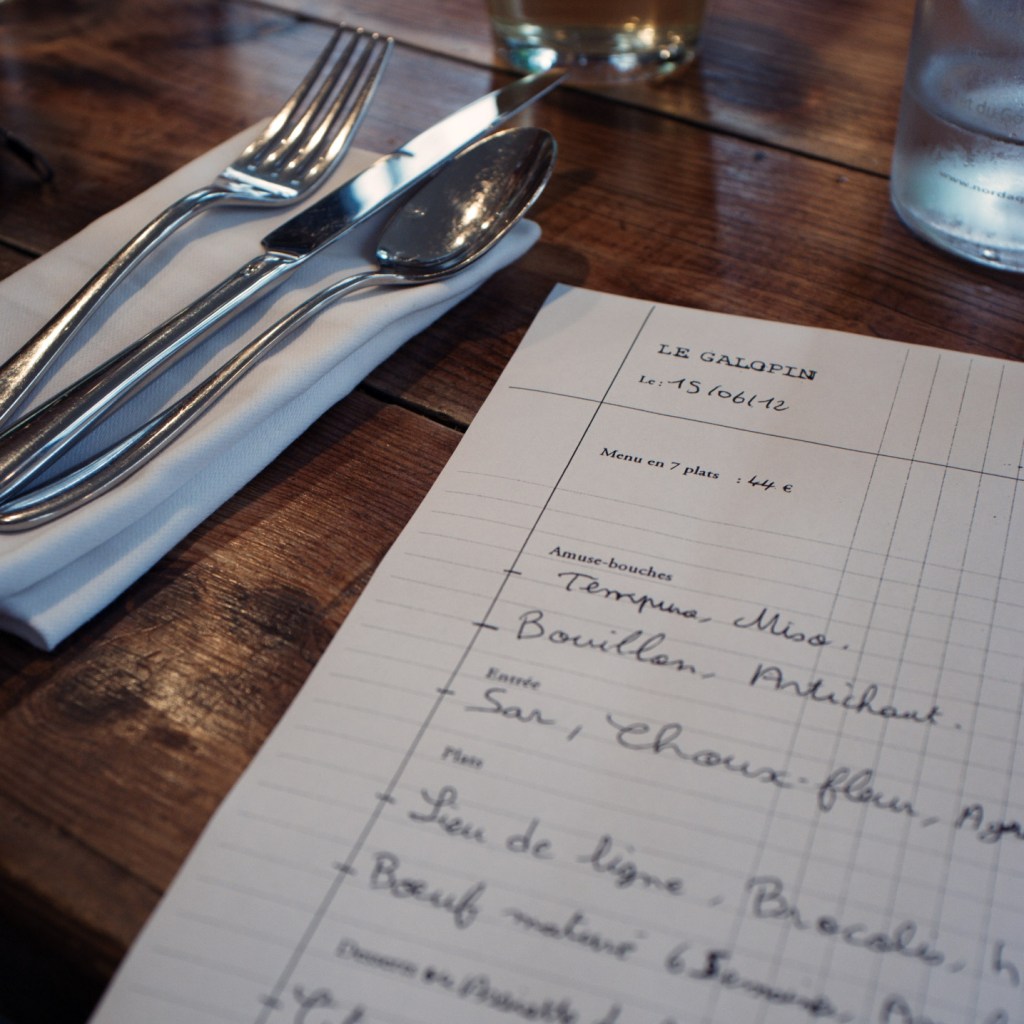 LE GALOPIN
Le : 15/06/12
Menu en 7 plats : 44 €
Amuse-bouches
Tempura, Miso.
Bouillon, Artichaut.
Entrée
Sar, Choux-fleur,
Plats
Lieu de ligne, Brocolis,
Bœuf maturé 6 Semaines,
www.nordaq